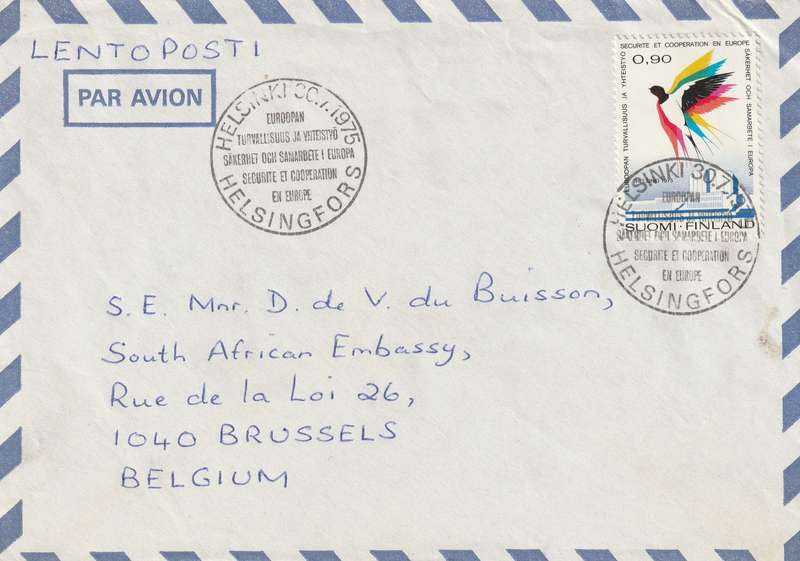 LENTOPOSTI
PAR AVION
HELSINKI 30.7.1975
EUROOPAN
TURVALLISUUS JA YHTEISTYÖ
SÄKERHET OCH SAMARBETE I EUROPA
SECURITE ET COOPERATION
EN EUROPE
HELSINGFORS
EUROOPAN TURVALLISUUS JA YHTEISTYÖ
SECURITE ET COOPERATION EN EUROPE
SÄKERHET OCH SAMARBETE I EUROPA
0,90
HELSINKI 1975
SUOMI·FINLAND
HELSINKI 30.7.
EUROOPAN
TURVALLISUUS JA YHTEISTYÖ
SÄKERHET OCH SAMARBETE I EUROPA
SECURITE ET COOPERATION
EN EUROPE
HELSINGFORS
S. E. Mnr. D. de V. du Buisson,
South African Embassy,
Rue de la Loi 26,
1040 BRUSSELS
BELGIUM